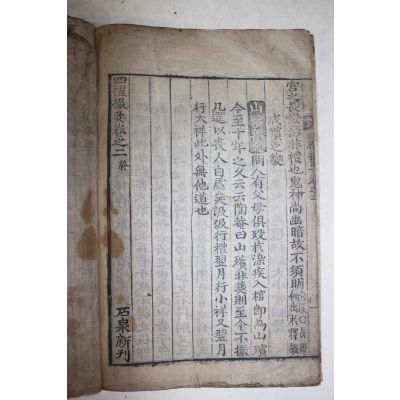 宮之長燈設非禮也鬼神尚幽暗故不須明
成殯之變
問人有父母俱歿於染疾入棺卽爲山殯
今至十年之久云云陶庵曰山殯非葬則至今不撤
几筵以喪人自處矣設汲行禮翌月行小祥又翌月
行大祥此外無他道也
四禮撮要卷之二 終
石泉新刊